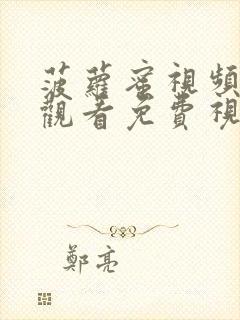 菠蘿蜜視頻
觀看免費視
鄭亮